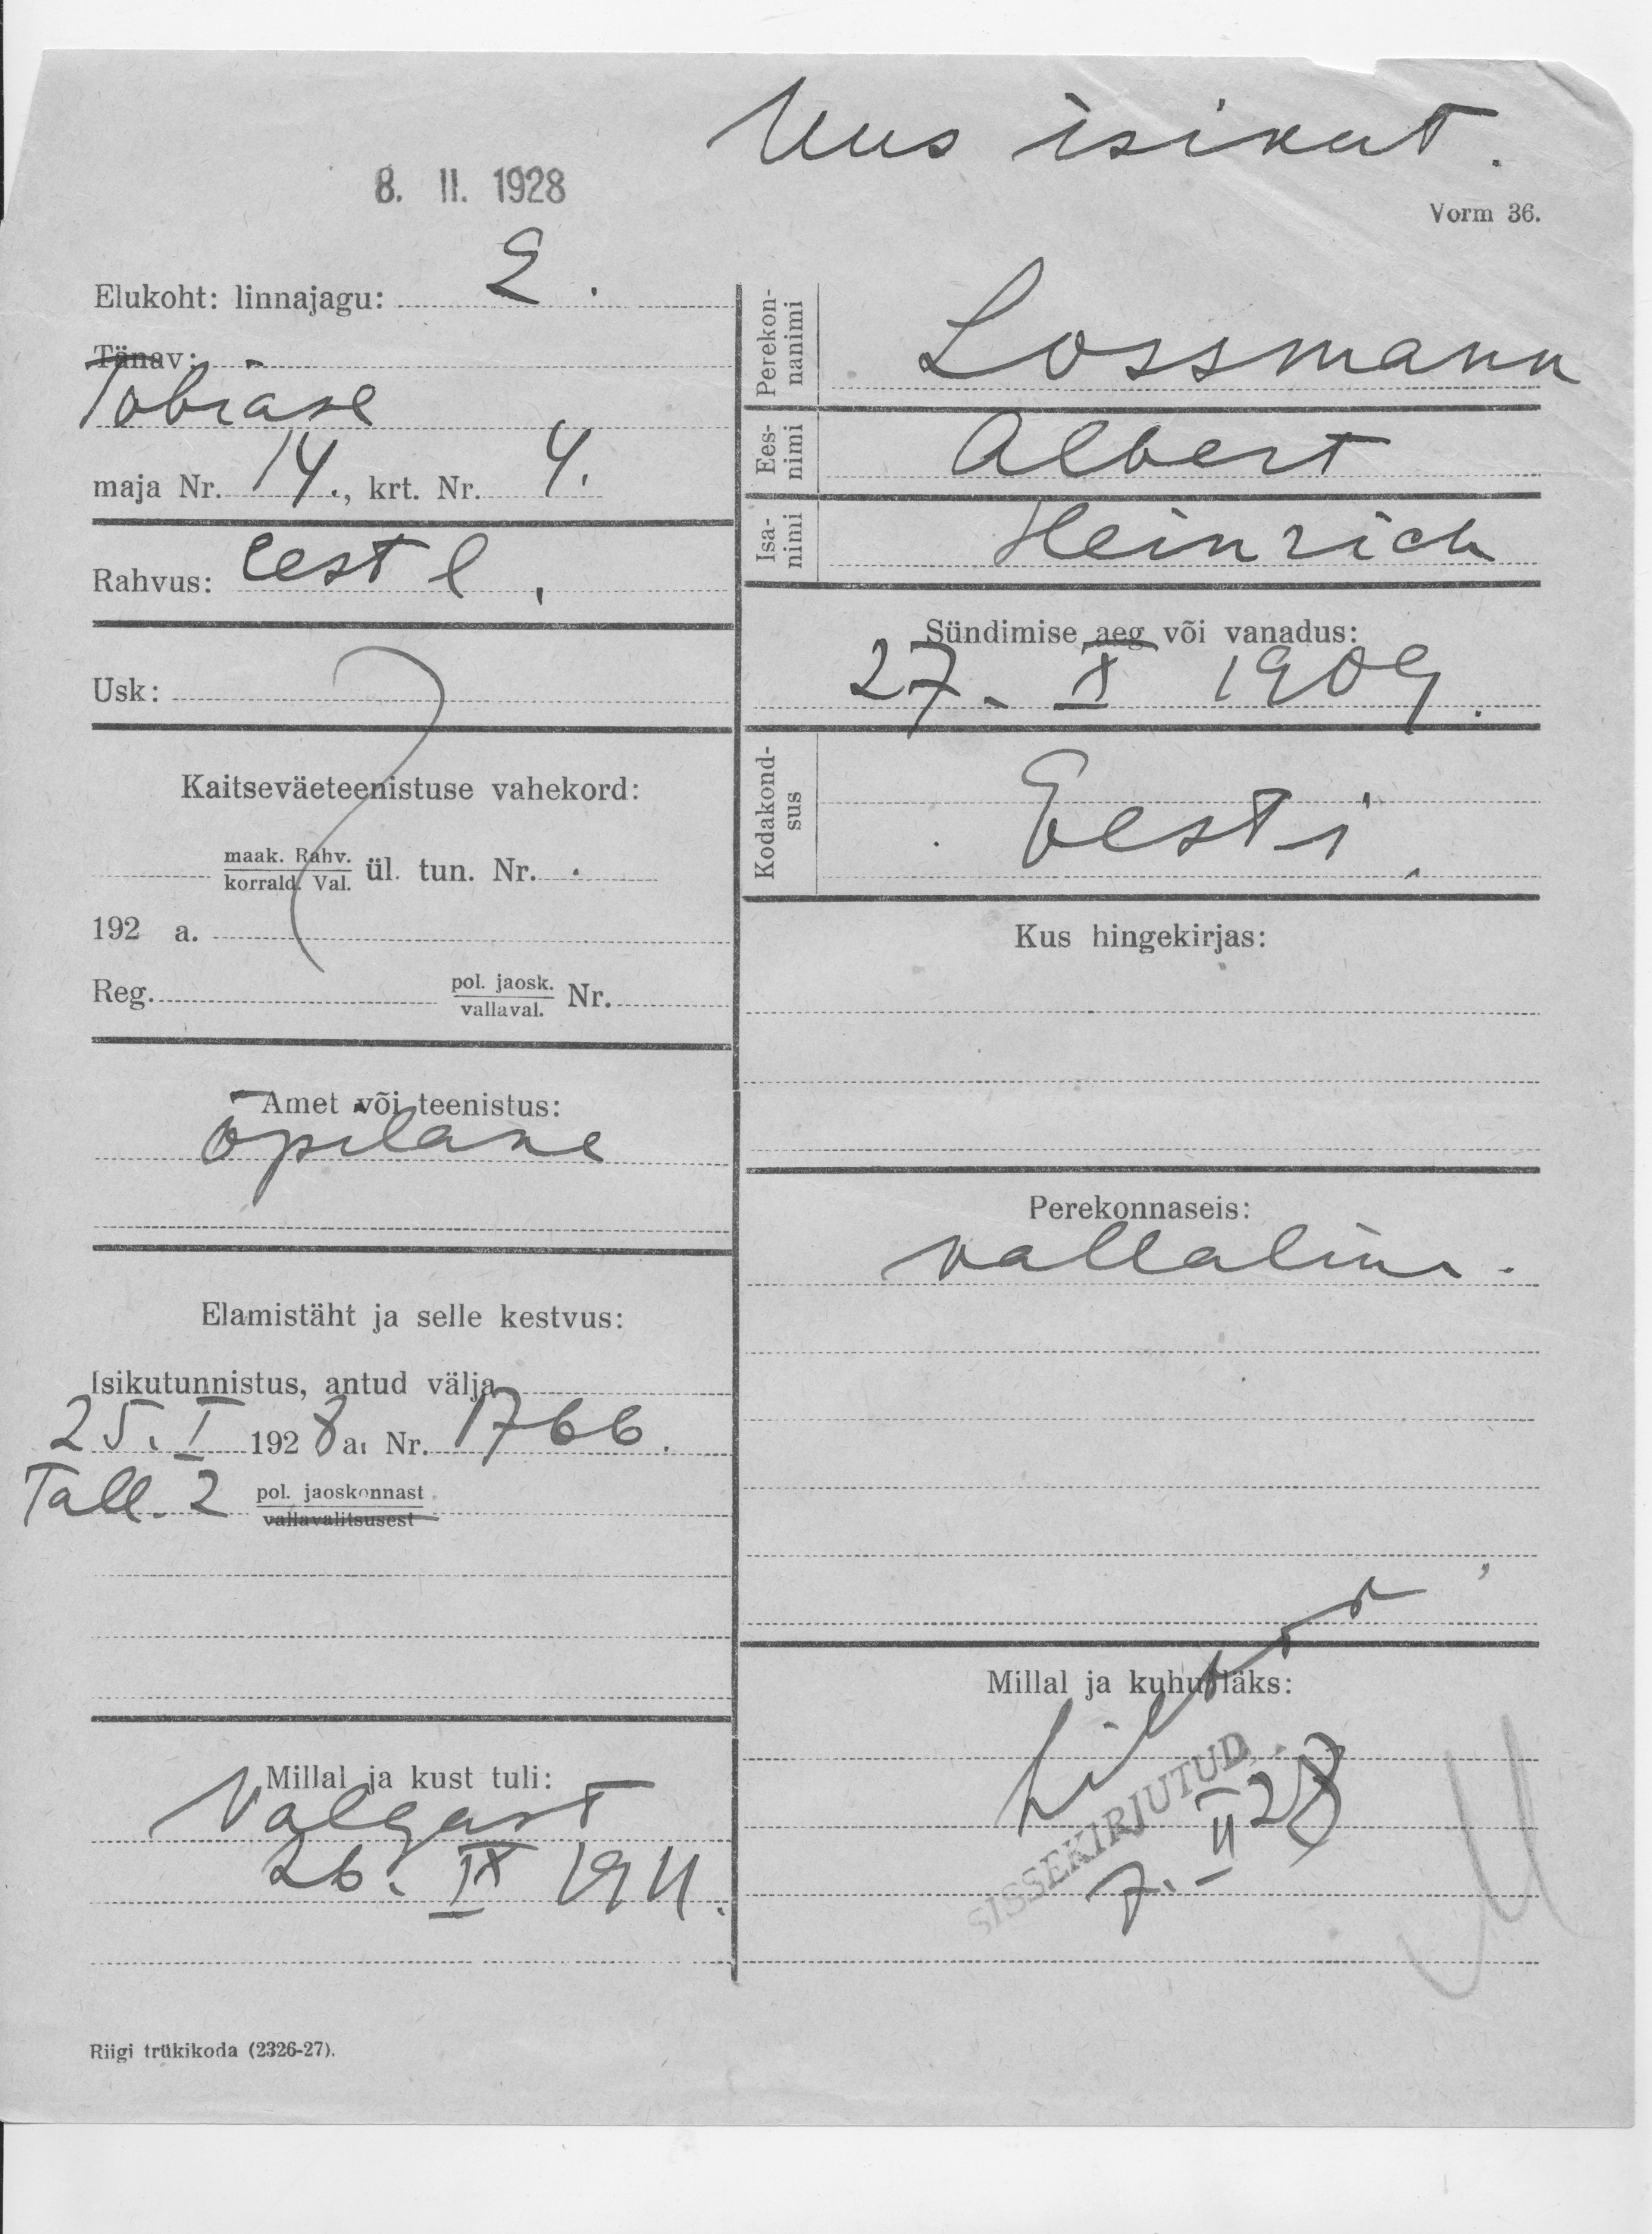 Uus isikut.
8. II. 1928
Vorm 36.
Elukoht: linnajagu: 2.
Tänav:
Tobiase
maja Nr. 14., krt. Nr. 4.
Rahvus: eestl.
Usk:
Kaitseväeteenistuse vahekord:
maak. Rahv.
korrald. Val. ül. tun. Nr.
192 a.
Reg. pol. jaosk. Nr.
vallaval.
Amet või teenistus:
õpilane
Elamistäht ja selle kestvus:
Isikutunnistus, antud välja
25. I 1928 a. Nr. 1766.
Tall. 2 pol. jaoskonnast
vallavalitsusest
Millal ja kust tuli:
Valgast
26. IX 1911.
Riigi trükikoda (2326-27).
Perekon-
nanimi
Lossmann
Ees-
nimi
Albert
Isa-
nimi
Heinrich
Sündimise aeg või vanadus:
27. X 1909.
Kodakond-
sus
Eesti.
Kus hingekirjas:
Perekonnaseis:
vallaline.
Millal ja kuhu läks:
SISSEKIRJUTUD
7. II 28